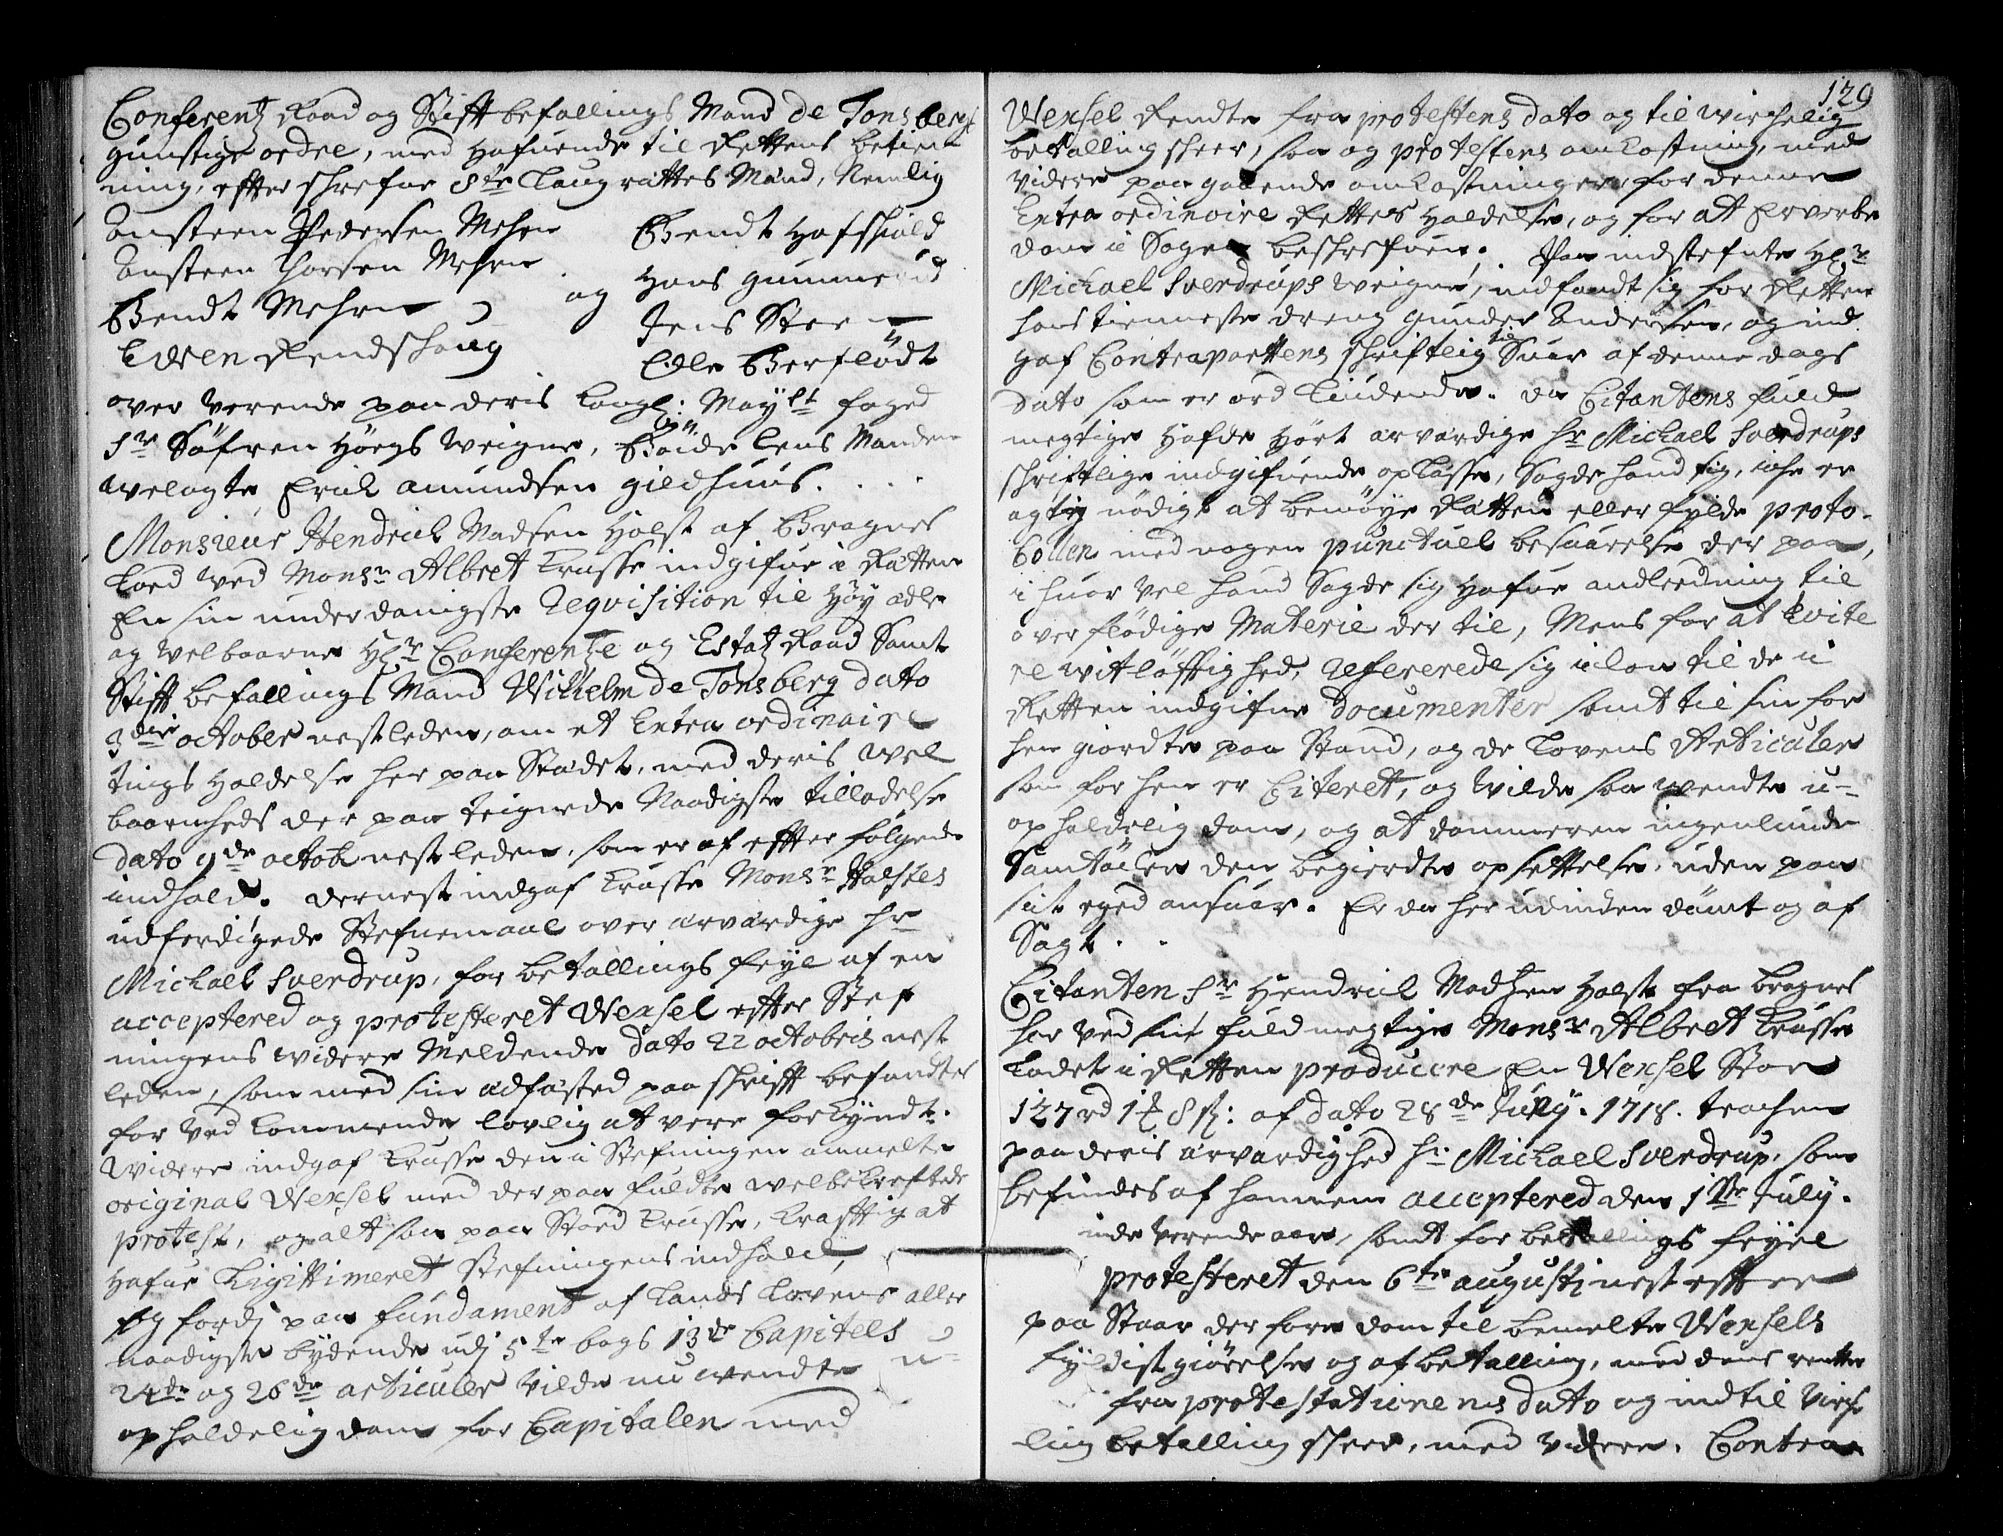 Conferentz Raad og Stift befallings Mand de Tonsberg
gunstige ordre, med hafuende til Rettens betien
ning, effter schrefne 8te Laugrettes Mænd, Nemlig
Ansteen Pedersen Mehrn
Bendt Hafskiold
Ansteen Thorsen Mehrn
og
Hans Gummerud
Bendt Mehrn
Jens Steen
Ewen Rendschoug
Edle Berflødt
over verende paa deris Kongl: Mayst foged
Sr Søfren Høegs weigne, Bøide lens Manden
welagte Erich Amundsen Gildhuus.
Monsieur Hendrich Madsen Holst af Bragnes
loed ved Monsr Albret Krusse indgifue i Retten
En sin underdanigste Reqvisition til Høy ædle
og welbaarne Hr Conferentze og Estatz Raad Samt
Stift befallings Mand Wilhelm de Tonsberg dato
3die october nestleden, om et Extra ordinaire
tings holdelse her paa Stædet, med deris wel
baarnheds der paa teignede Naadigste tilladelse
dato 9de octobr nestleden, som er af effter følgende
indhold. Dernest indgaf Krusse Monsr Holstes
udferdigede Stefnemaal over ærværdige Hr
Michael Sverdrup, for betallings feyl af en
accepteret og protesteret Wexsel effter Stef
ningens widere Meldende dato 22 octobris nest
leden, som med sin ædfæsted paaskrifft befandtes
for ved kommende lovlig at vere forkyndt.
Widere indgaf Krusse den i Stefningen anmelte
original Wexsel med der paa fuldte welbekreftede
protest, og alt saa paa Stoed Krusse, krafftig at
hafue ligittimeret Stefningens indhold,
og fordj paa fundament af Lands Lovens aller
naadigste bydende udj 5te bogs 13de Capitels
24de og 26de articuler vilde nu wendte u-
opholdelig dom for Capitalen med
129
Wexsel Rendte fra protestens dato og til wirchelig
betalling scheer, saa og protestens omkostning, med
videre paa gaaende omkostninger for denne
Extra ordinaire Rettes holdelse, og for at Erverbe
dom i Sagen beschrefven. Paa indstefnte Hr
Michael Sverdrups weigne, indfandt sig for Retten
hans tienneste dreng Gunder Andersen, og ind
gaf Contrapartens schriftlig til Suar af denne dags
dato som er ord lydende. Da Citantens fuld
megtige hafde hørt ærværdige Hr Michael Sverdrups
schriftlige indgifuende oplæsse, Sagde hand sig, iche er
agtig nødigt at bemøye Retten eller fylde proto-
collen med nogen punctuel besuarelse der paa,
i huor vel hand Sagde sig hafue andleedning til
overflødige Materie der til, Mens for at Evite
re witløfftighed, refererede sig i lon til de i
Retten indgifne Documenter samt til sin for
hen giordte paa Stand, og de Lovens Articuler
som for hen er Citeret, og wilde saa wendte u-
opholdelig dom, og at dommeren ingenlunde
Samtøcker den begierdte opsettelse, uden paa
sit eged ansuar. Er da her udinden dømt og af
Sagt.
Citanten Sr Hendrich Madtzen Holst fra Bragnes
har ved sin fuldmegtige Monsr Albret Krusse
ladet i Retten producere En Wexsel Stor
127 rd 1 ort 8 s: af dato 28de Juny. 1718. trochen
paa deris ærværdighed Hr. Michael Sverdrup, som
befindes af hannem accepteret den 1ste July.
inde verende aar, samt for betallings feyel
protesteret den 6te augustj nest effter
paa Staar der fore dom til bemelte Wexsels
fyldist giørelse og af betalling, med dens rente
fra protestationenens dato og indtil virche
lig betalling scheer, med videre. Contra